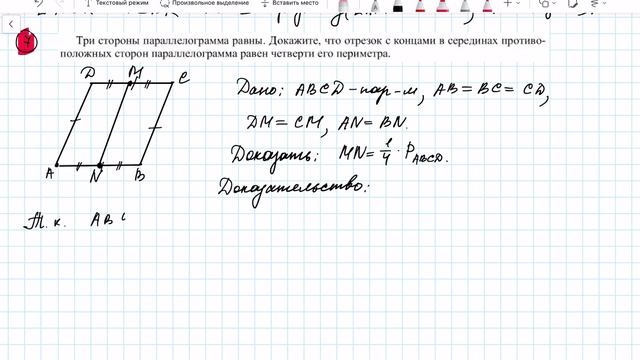 Текстовый режим
Произвольное выделение
Вставить место
7
Три стороны параллелограмма равны. Докажите, что отрезок с концами в серединах противо-
положных сторон параллелограмма равен четверти его периметра.
D M C
A N B
Дано: ABCD - пар-м, AB = BC = CD,
DM = CM, AN = BN.
Доказать: MN = 1/4 · P_ABCD.
Доказательство:
Т. к. AB